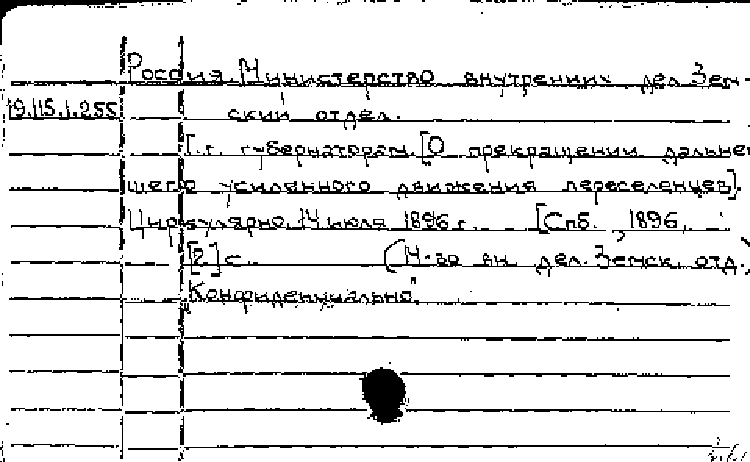 Россия. Министерство внутренних дел. Зем-
19.115.1.255 ский отдел.
Г.г. губернаторам. [О прекращении дальней
шего усиленного движения переселенцев].
Циркулярно. 14 июля 1896 г. [Спб., 1896,
[2] с. (М-во вн. дел. Земск. отд.)
"Конфиденциально".